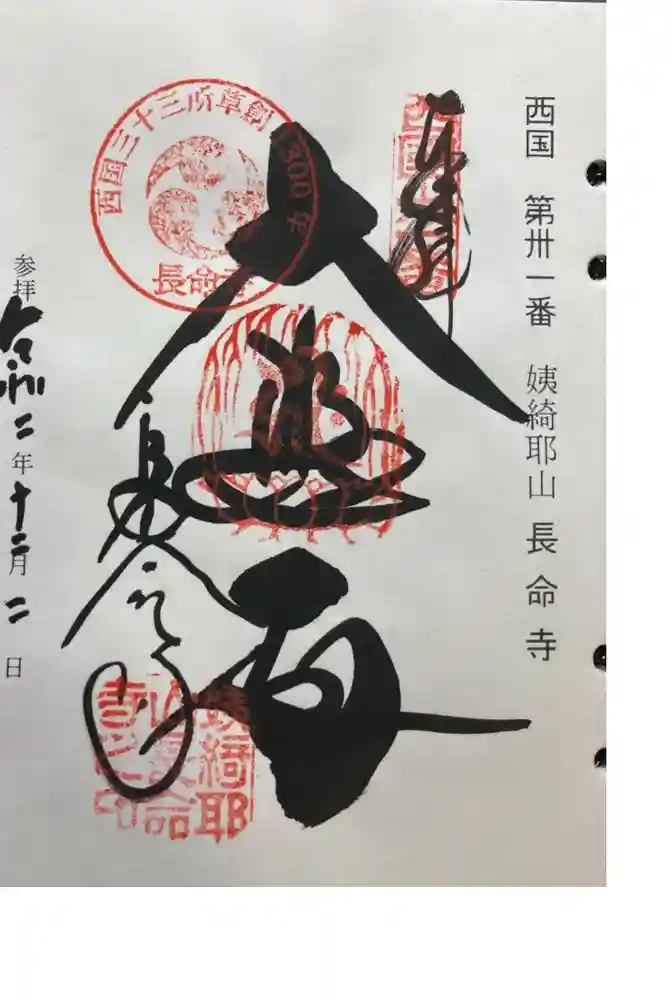 西国 第卅一番 姨綺耶山 長命寺
奉拝
大悲殿
長命寺
西国三十三所草創1300年
長命寺
姨綺耶
山長命
寺之印
参拝 令和二年十二月二日